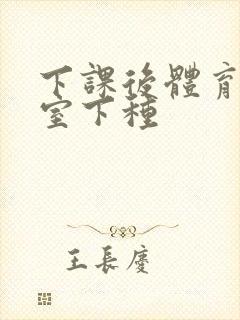 下課後體育
室下種
王長慶